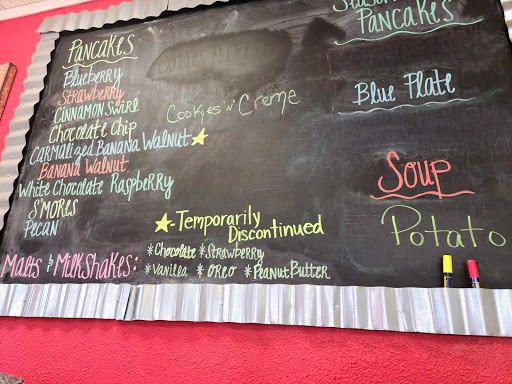 Pancakes
Blueberry
Strawberry
Cinnamon Swirl
Chocolate Chip
Carmalized Banana Walnut
Banana Walnut
White Chocolate Raspberry
S'mores
Pecan
Cookies 'n' Creme
- Temporarily
Discontinued
Malts & Milkshakes:
*Chocolate *Strawberry
*Vanilla *Oreo *Peanut Butter
Pancakes
Blue Plate
Soup
Potato